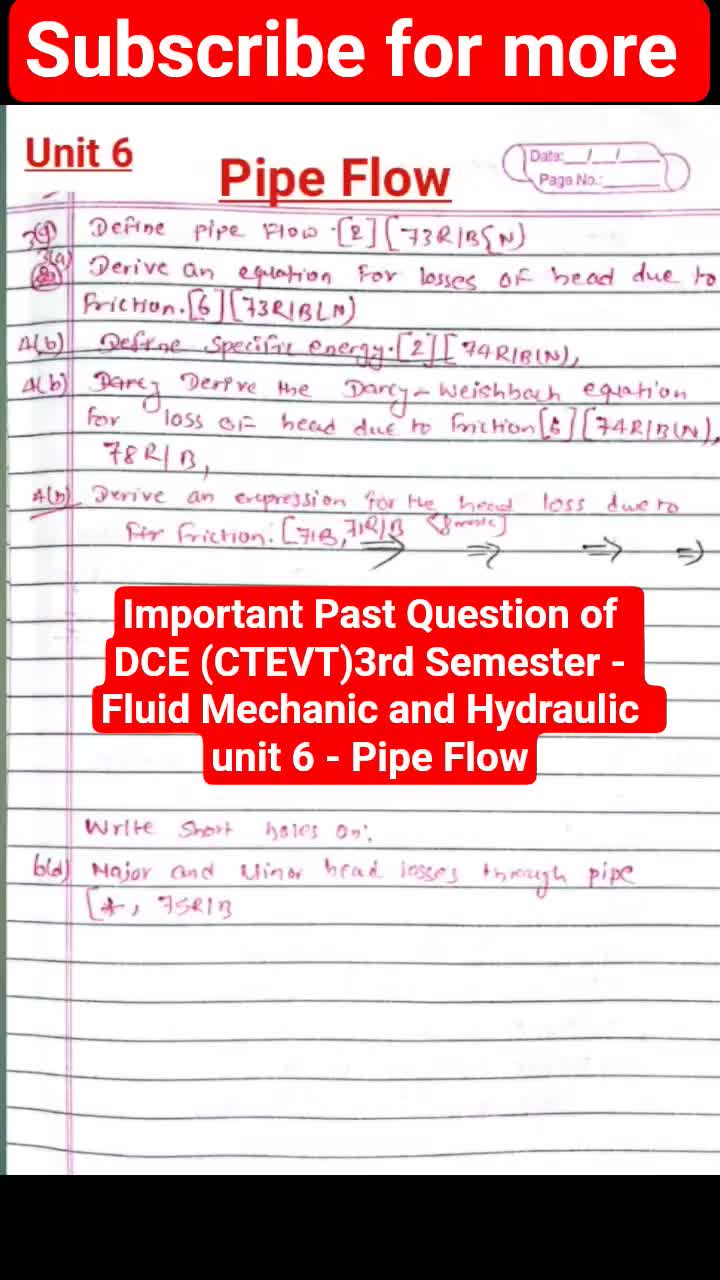 Subscribe for more
Unit 6
Date: __/__/____
Page No.:______
Pipe Flow
3(a) Define pipe Flow.[2][73R/B(N)
3(a) Derive an equation For losses of head due to
Friction.[6][73R/B(N)
4(b) Define specific energy.[2][74R/B(N),
4(b) Darcy Derive the Darcy-Weishbach equation
For loss of head due to Friction[6][74R/B(N),
78R/B,
4(b) Derive an expression for the head loss due to
Friction:[71B, 71R/B [8 marks]
⇒ ⇒ ⇒ ⇒
Important Past Question of
DCE (CTEVT)3rd Semester -
Fluid Mechanic and Hydraulic
unit 6 - Pipe Flow
Write Short notes On:
6(d) Major and Minor head losses through pipe
[4, 75R/B